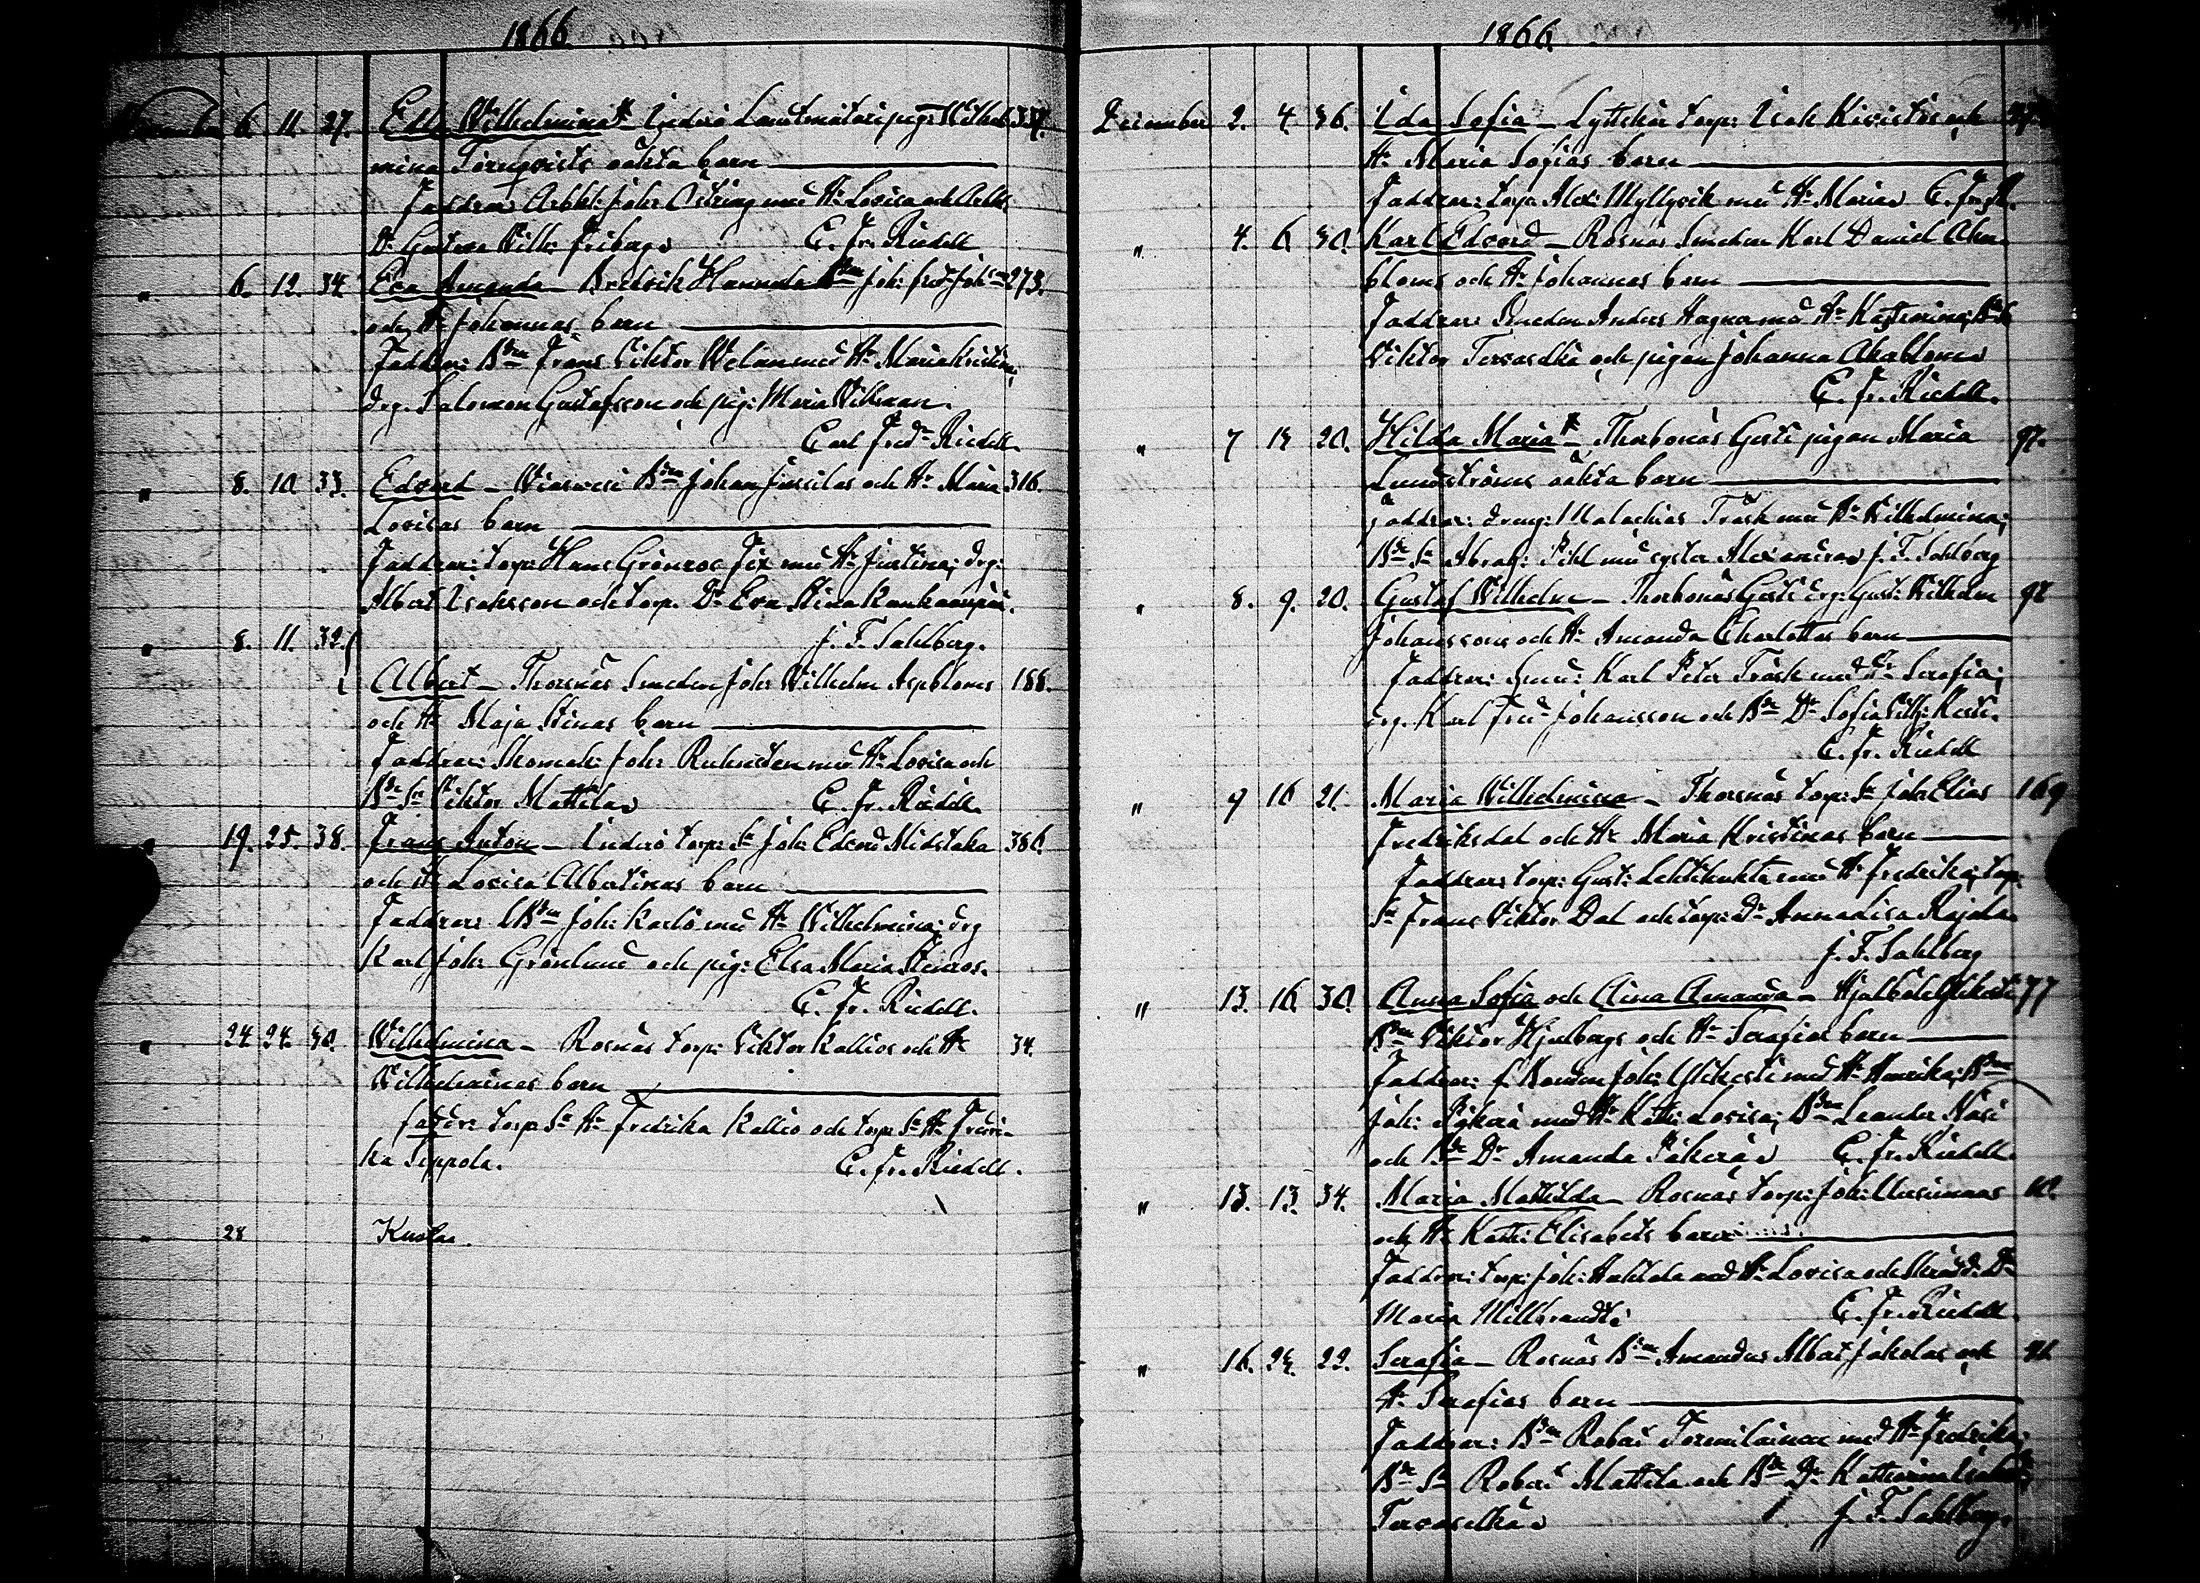 1866.
November 6. 11. 27. Edla Wilhelmina Inderö Landtmäteri pig: Wilhel 337.
mina Törnqvists oäkta barn
Faddrar: Arbk: Joh: Öström med H: Lovisa och
Dr Gustava Wilh: Fribergs C. Fr. Riedell
" 6. 12. 34. Eva Amanda — Bredvik Hannula Bdn Joh: Fred: Joh:sons 273.
och H: Johannas barn
Faddrar: Bdn Frans Viktor Welan med H: Maria Kristina;
drg. Salomon Gustafsson och pig: Maria Willman.
Carl Fredr Riedell.
" 8. 10. 33. Edvard — Bdn Johan Jussilas och H: Maria 316.
Lovisas barn
Faddrar: torp: Hans Grönroos Fix med H: Justina; drg:
Albert Isaksson och torp. Dr Eva Stina Kankaanpää.
J. F. Sahlberg.
" 8. 11. 32. Albert — Thorsnäs Smeden Joh: Wilhelm Aspbloms 188.
och H: Maja Stinas barn
Faddrar: Skomak: Joh: med H: Lovisa och
Bde Sn Viktor Mattila C. Fr. Riedell.
" 19. 25. 38. Frans Anton — Inderö torp: Sn Joh: Edvard Midstaka 386.
och H: Lovisa Albertinas barn
Faddrar: Bdn Joh: Karlö med H: Wilhelmina; drg
Karl Joh: Grönlund och pig: Elsa Maria Stenros.
C. Fr. Riedell.
" 24. 24. 40. Wilhelmina — Rosnäs torp: Viktor Kallios och H: 34.
Wilhelminas barn
fadder: torp Sn H: Fredrika Kallio och torp Sn H: Fredri-
ka Seppola. C. Fr. Riedell.
" 28 Knolaa.
1866.
December 2. 4. 36. Ida Sofia — Lyttskär torp: Isak Kivistös och
H: Maria Sofias barn
Faddrar: torp: Alex: Myllyvik med H: Maria C. Fr. R.
" 4. 6. 30. Karl Edvard — Rosnäs Smeden Karl Daniel Ahl-
bloms och H: Johannas barn
Faddrar: Smeden Anders Hagna med H: Katharina; Bde Sn
Viktor Tervaselkä och pigan Johanna Ahlblom
C. Fr. Riedell.
" 7 14 20. Hilda Maria — Thorbonäs Gesti pigan Maria 97.
Lundströms oäkta barn
Faddrar: dreng: Malachias Träsk med H: Wilhelmina;
Bde Sn Abrah: Pihl med syster Alexandra J. F. Sahlberg
" 8. 9. 20. Gustaf Wilhelm — Thorbonäs Gesti drg: Gust: Wilhelm 92
Johanssons och H: Amanda Charlottas barn
Faddrar: Smed: Karl Peter Träsk med Dr Serafia;
drg. Karl Fred: Johansson och Bde Dr Sofia Wilh: Kesti.
C. Fr. Riedell
" 9 16 21. Maria Wilhelmina — Thorsnäs torp: Sn Joh: Elias 169
Fredriksdal och H: Maria Kristinas barn
Faddrar: torp: Gust: Lehtihuhta med H: Fredrika; torp.
Sn Frans Viktor Dal och torp: Dr Anna Lisa Rajala
J. F. Sahlberg
" 13. 16. 30. Anna Sofia och Aina Amanda — Hjulböle Ylikesti 77
Bdn Viktor Hjulbergs och H: Serafias barn
Faddrar: f. Bonden Joh: Ylikesti med H: Henrika; Bdn
Joh: Päkerä med H: Kath: Lovisa; Bdn Leander Näsi
och Bde Dr Amanda Päkerä C. Fr. Riedell.
" 13. 13. 34. Maria Mathilda — Rosnäs torp: Joh: Uusimaas 10.
och H: Kath: Elisabets barn
Faddrar: torp: Joh: Anttila med H: Lovisa och Dr
Maria Millbrandt C. Fr. Riedell.
" 16. 24. 22. Serafia — Rosnäs Bdn Amandus Albert Jakolas och 21
H: Serafias barn
Faddrar: Bdn Robert Tornilainen med H: Fredrika;
Bde Sn Robert Mattila och Bde Dr Katharina
Tervaselkä J. F. Sahlberg.